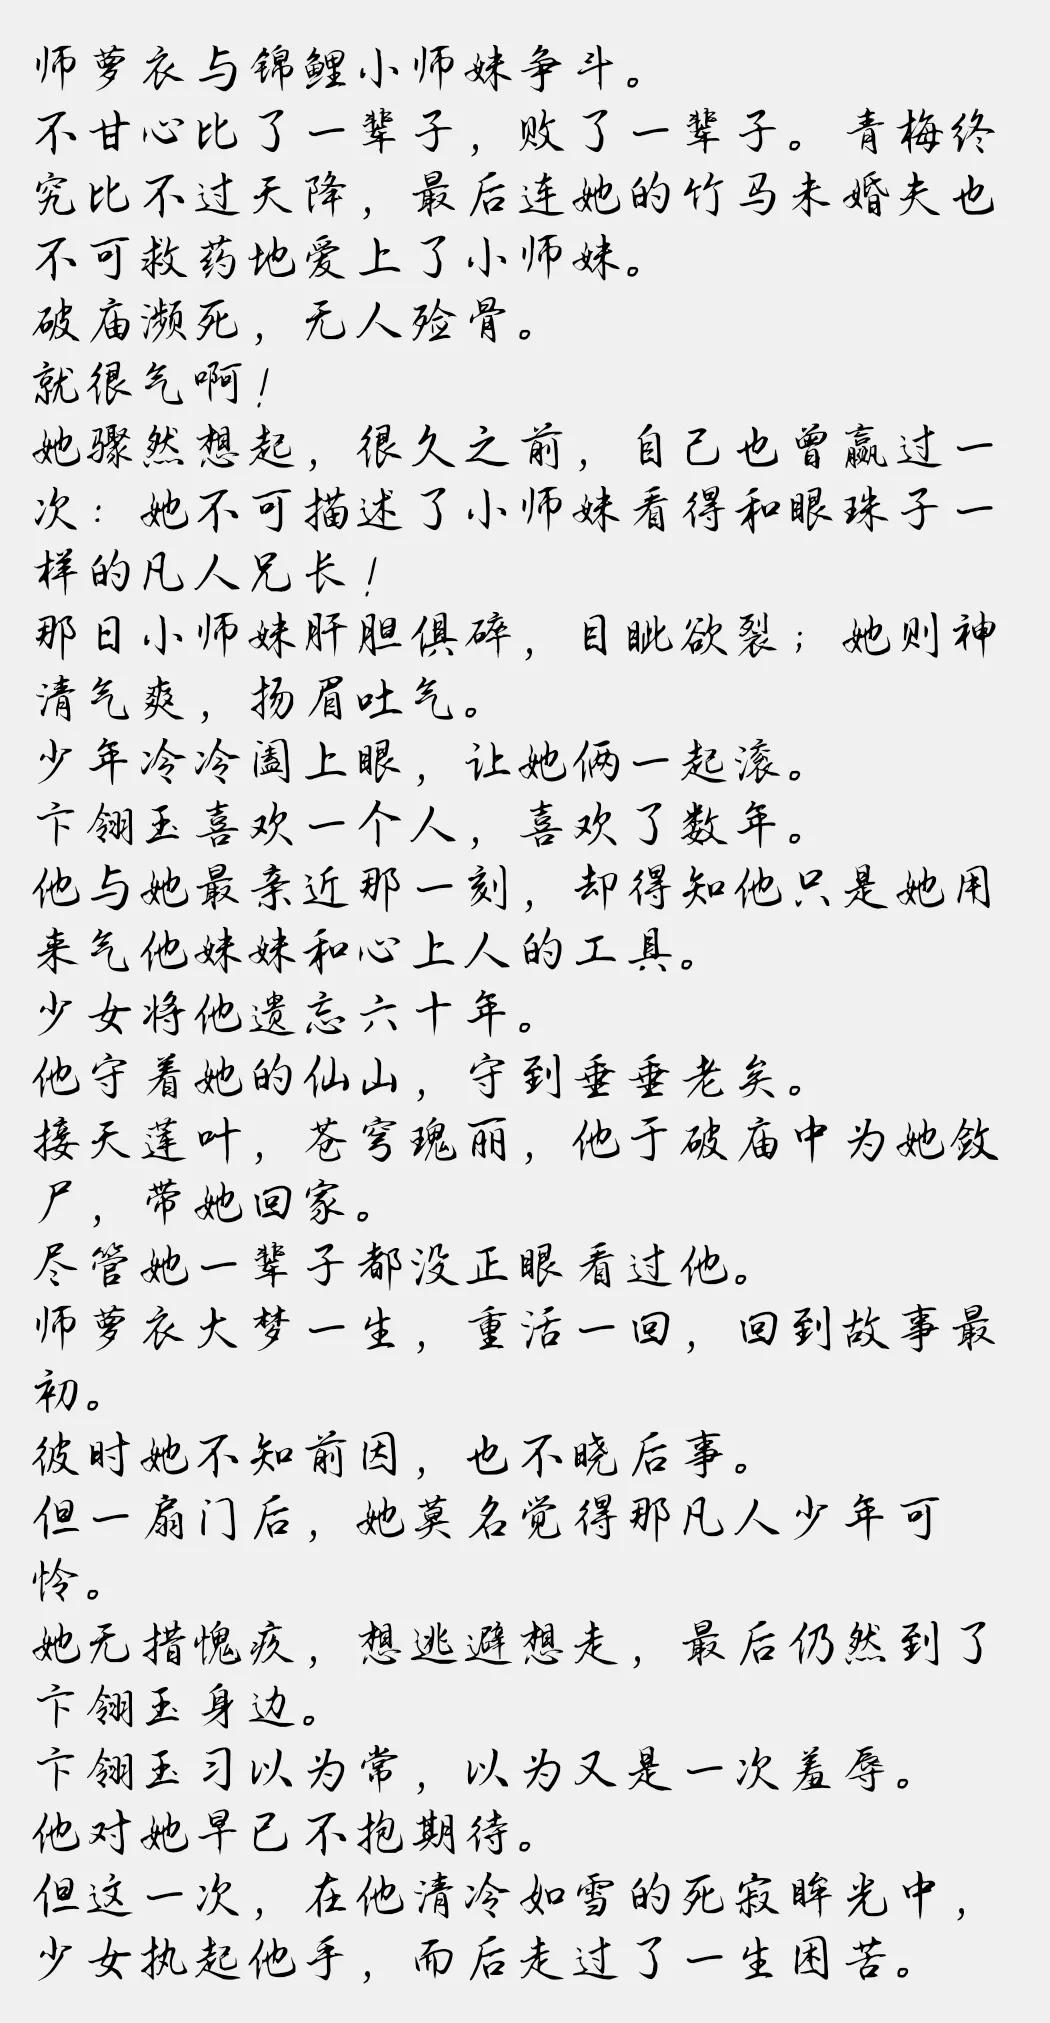 师萝衣与锦鲤小师妹争斗。
不甘心比了一辈子，败了一辈子。青梅终
究比不过天降，最后连她的竹马未婚夫也
不可救药地爱上了小师妹。
破庙濒死，无人殓骨。
就很气啊！
她骤然想起，很久之前，自己也曾赢过一
次：她不可描述了小师妹看得和眼珠子一
样的凡人兄长！
那日小师妹肝胆俱碎，目眦欲裂；她则神
清气爽，扬眉吐气。
少年冷冷阖上眼，让她俩一起滚。
卞翎玉喜欢一个人，喜欢了数年。
他与她最亲近那一刻，却得知他只是她用
来气他妹妹和心上人的工具。
少女将他遗忘六十年。
他守着她的仙山，守到垂垂老矣。
接天莲叶，苍穹瑰丽，他于破庙中为她敛
尸，带她回家。
尽管她一辈子都没正眼看过他。
师萝衣大梦一生，重活一回，回到故事最
初。
彼时她不知前因，也不晓后事。
但一扇门后，她莫名觉得那凡人少年可
怜。
她无措愧疚，想逃避想走，最后仍然到了
卞翎玉身边。
卞翎玉习以为常，以为又是一次羞辱。
他对她早已不抱期待。
但这一次，在他清冷如雪的死寂眸光中，
少女执起他手，而后走过了一生困苦。